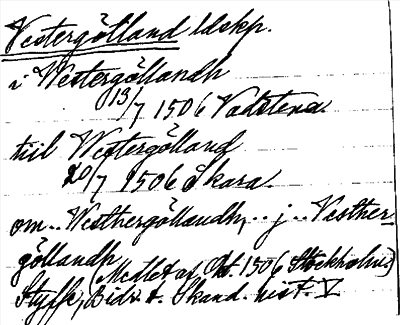 Vestergölland ldskp.
i Westergöllandh
13/7 1506 Vadstena.
till Westergölland
20/7 1506 Skara.
om.. Westhergöllandh,.. j.. Vesther-
göllandh
(Medlet af Okt. 1506 Stockholm)
Styffe, Bidr. t. Skand. hist. V